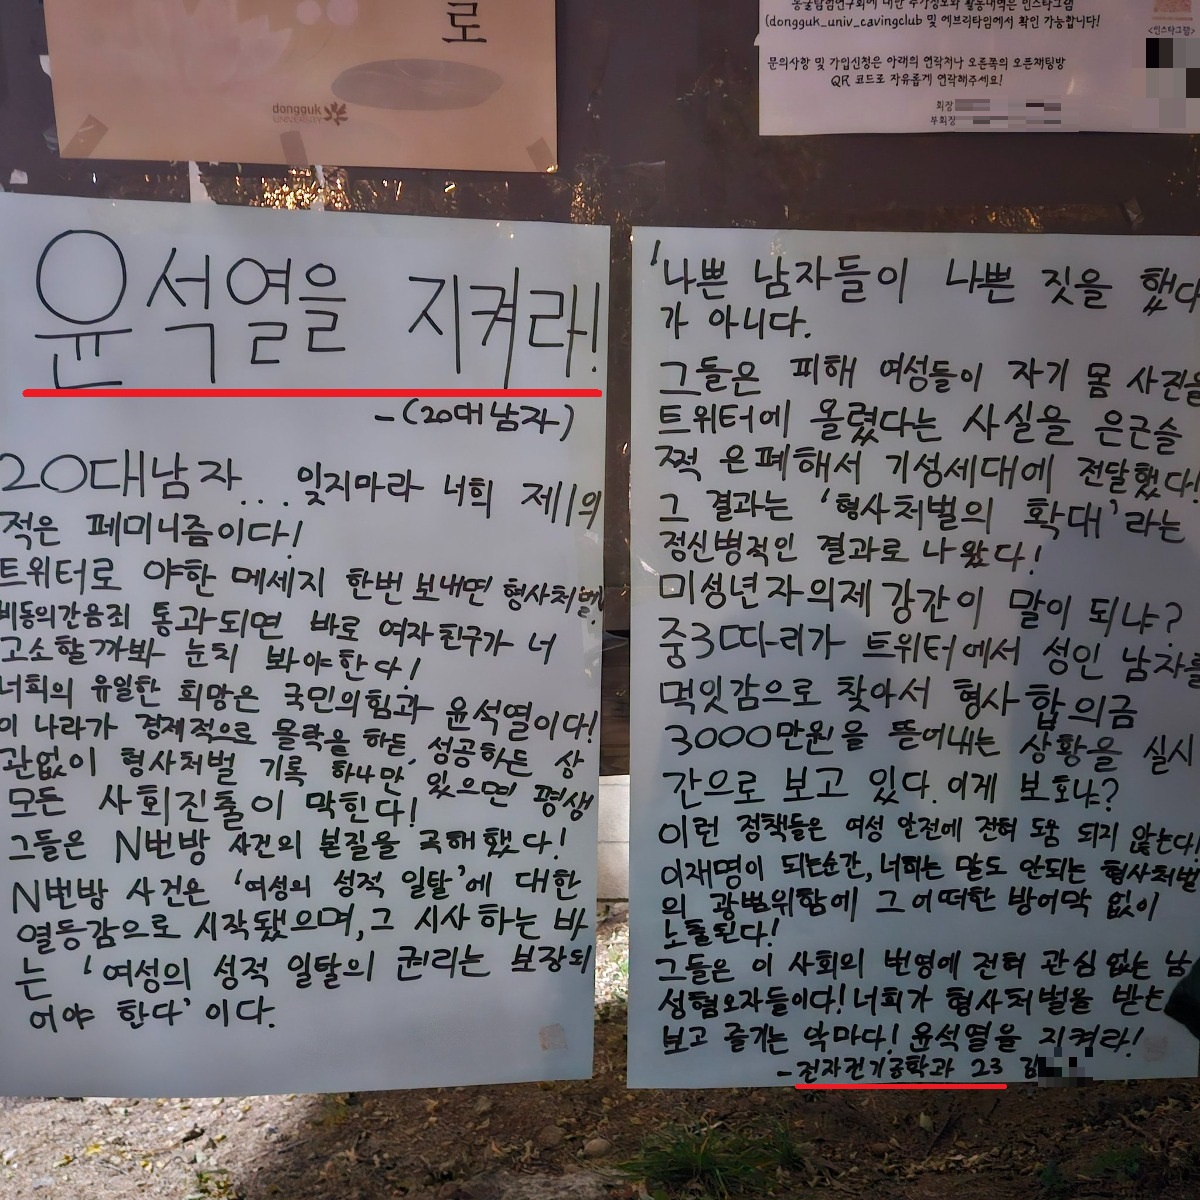 로
dongguk
UNIVERSITY
동굴탐험연구회에 대한 추가정보와 활동내역은 인스타그램
(dongguk_univ_cavingclub 및 에브리타임에서 확인 가능합니다!
문의사항 및 가입신청은 아래의 연락처나 오른쪽의 오픈채팅방
QR 코드로 자유롭게 연락해주세요!
회장
부회장
<인스타그램>
윤석열을 지켜라!
-(20대남자)
20대남자... 잊지마라 너희 제1의
적은 페미니즘이다!
트위터로 야한 메세지 한번 보내면 형사처벌!
비동의간음죄 통과되면 바로 여자친구가 너
고소할까봐 눈치 봐야한다!
너희의 유일한 희망은 국민의힘과 윤석열이다!
이 나라가 경제적으로 몰락을 하든, 성공하든 상
관없이 형사처벌 기록 하나만 있으면 평생
모든 사회진출이 막힌다!
그들은 N번방 사건의 본질을 곡해했다!
N번방 사건은 '여성의 성적 일탈'에 대한
열등감으로 시작됐으며, 그 시사하는 바
는 '여성의 성적 일탈의 권리는 보장되
어야 한다' 이다.
'나쁜 남자들이 나쁜 짓을 했다
가 아니다.
그들은 피해 여성들이 자기 몸 사진을
트위터에 올렸다는 사실을 은근슬
쩍 은폐해서 기성세대에 전달했다!
그 결과는 '형사처벌의 확대'라는
정신병적인 결과로 나왔다!
미성년자의제강간이 말이 되냐?
중3따리가 트위터에서 성인 남자를
먹잇감으로 찾아서 형사합의금
3000만원을 뜯어내는 상황을 실시
간으로 보고 있다. 이게 보호냐?
이런 정책들은 여성 안전에 전혀 도움 되지 않는다!
이재명이 되는순간, 너희는 말도 안되는 형사처벌
의 광범위함에 그 어떠한 방어막 없이
노출된다!
그들은 이 사회의 번영에 전혀 관심 없는 남
성혐오자들이다! 너희가 형사처벌을 받는
보고 즐기는 악마다! 윤석열을 지켜라!
-전자전기공학과 23 김